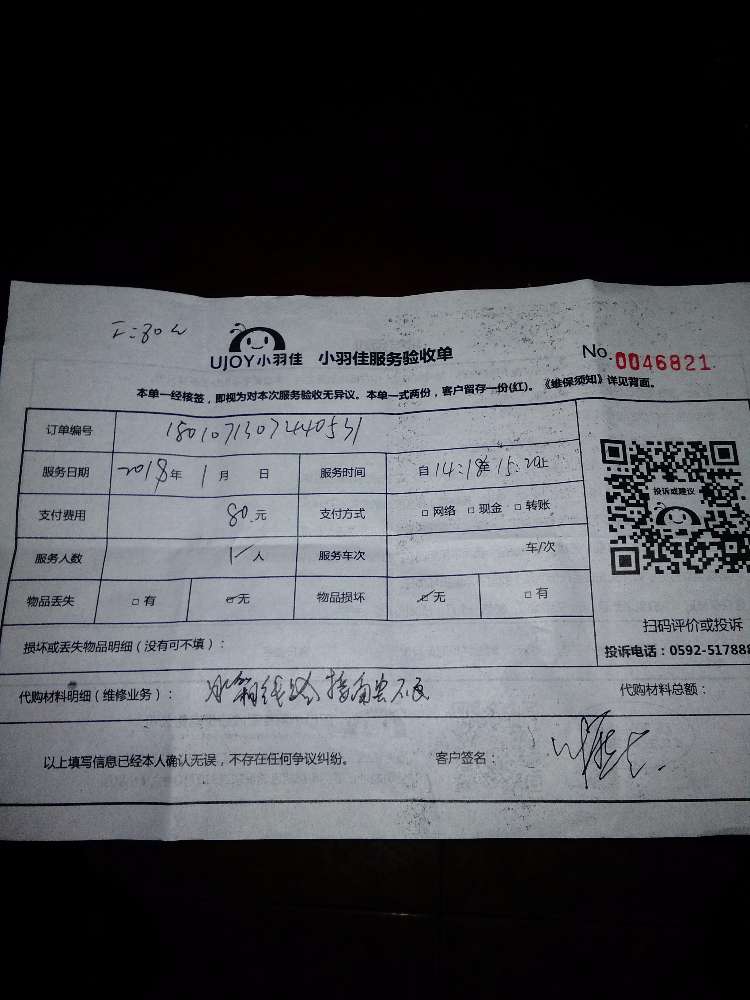 工:80元
UJOY小羽佳 小羽佳服务验收单 No.0046821
本单一经核签，即视为对本次服务验收无异议。本单一式两份，客户留存一份(红)。《维保须知》详见背面。
订单编号 1801071307240531
服务日期 2018年 1月 日 服务时间 自14:18至15:20止
支付费用 80元 支付方式 □网络 □现金 □转账
投诉或建议
服务人数 1人 服务车次 车/次
物品丢失 □有 ☑无 物品损坏 ☑无 □有
扫码评价或投诉
损坏或丢失物品明细（没有可不填）：
投诉电话：0592-517888
代购材料明细（维修业务）： 冰箱线路接触不良 代购材料总额：
以上填写信息已经本人确认无误，不存在任何争议纠纷。 客户签名：